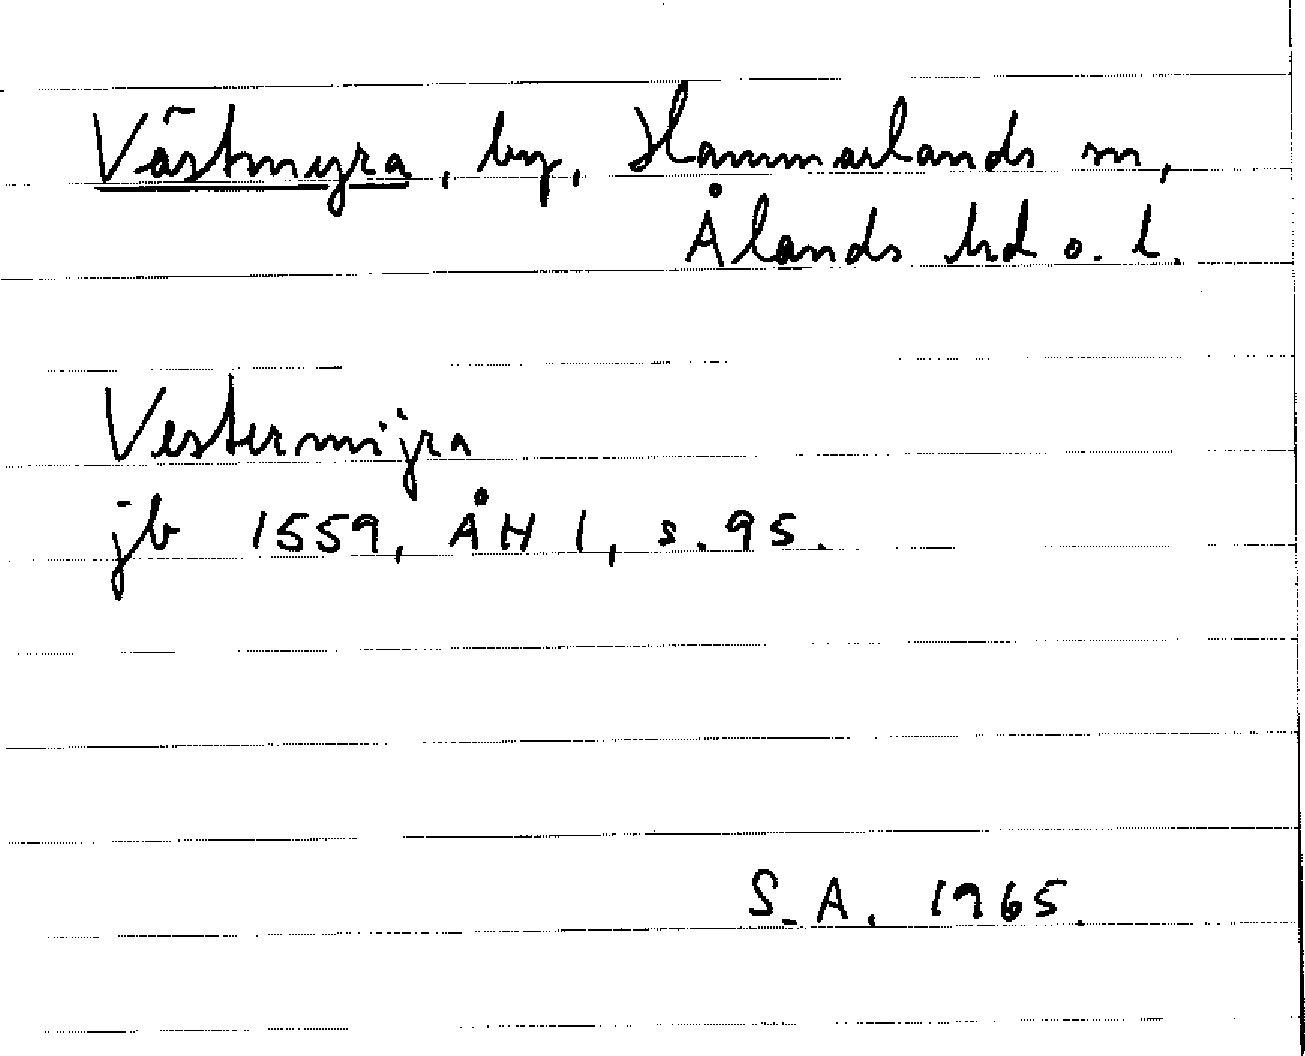 Västmyra, by, Hammarlands sn,
Ålands hd o. l.
Vestermÿra
jb 1559, ÅH 1, s. 95.
S.A. 1965.